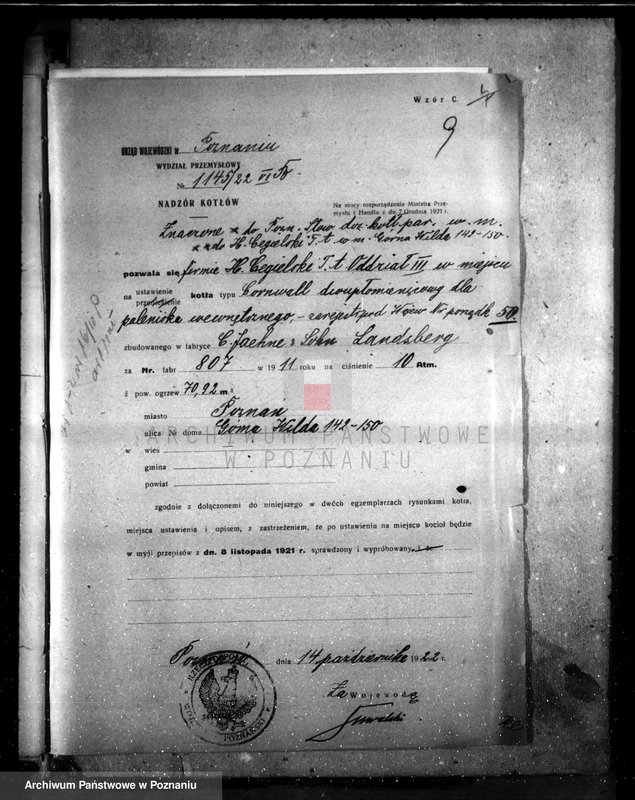 Wzór C.
9
URZĄD WOJEWÓDZKI w Poznaniu
WYDZIAŁ PRZEMYSŁOWY
№ 1145/22 VI
NADZÓR KOTŁÓW
Na mocy rozporządzenia Ministra Prze-
mysłu i Handlu z dn. 7 Grudnia 1921 r.
Znaczone do Pozn. Stow. doz. kotł. par. w m.
do H. Cegielski T. A. w m. Gorna Wilda 142-150.
pozwala się firmie H. Cegielski T. A. Oddział III w miejscu
na ustawienie
przeniesienie kotła typu Cornwall dwupłomienicowy dla
paleniska wewnętrznego, - zarejestr. pod Nr porządk 50
zbudowanego w fabryce C. Jaehne & Sohn Landsberg
za Nr. fabr 807 w 1911 roku na ciśnienie 10 Atm.
ź pow. ogrzew 70,92 m.²
miasto Poznań
ulica № domu Gorna Wilda 142-150
w wieś
gmina
powiat
zgodnie z dołączonemi do niniejszego w dwóch egzemplarzach rysunkami kotła,
miejsca ustawienia i opisem, z zastrzeżeniem, że po ustawieniu na miejscu kocioł będzie
w myśl przepisów z dn. 8 listopada 1921 r. sprawdzony i wypróbowany
Poznań, dnia 14 października 1922 r.
Za Wojewodę
WOJ. POZNAŃSKI
ARCHIWUM PAŃSTWOWE
W POZNANIU
Archiwum Państwowe w Poznaniu